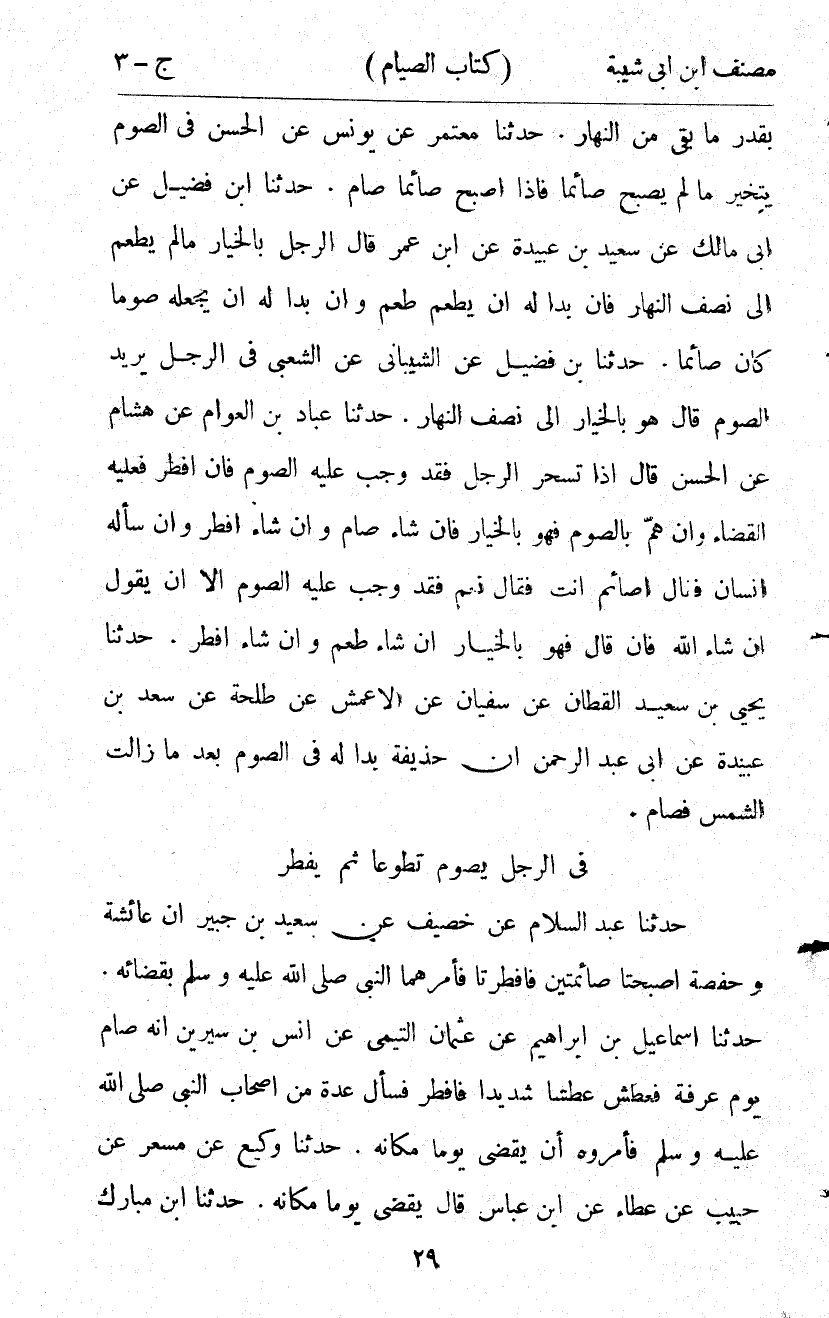 مصنف ابن ابى شيبة (كتاب الصيام) ج - ٣
بقدر ما بقى من النهار . حدثنا معتمر عن يونس عن الحسن فى الصوم
يتخير مالم يصبح صائما فاذا اصبح صائما صام . حدثنا ابن فضيل عن
ابى مالك عن سعيد بن عبيدة عن ابن عمر قال الرجل بالخيار مالم يطعم
الى نصف النهار فان بدا له ان يطعم طعم وان بدا له ان يجعله صوما
كان صائما . حدثنا بن فضيل عن الشيبانى عن الشعبى فى الرجل يريد
الصوم قال هو بالخيار الى نصف النهار . حدثنا عباد بن العوام عن هشام
عن الحسن قال اذا تسحر الرجل فقد وجب عليه الصوم فان افطر فعليه
القضاء وان همّ بالصوم فهو بالخيار فان شاء صام وان شاء افطر وان سأله
انسان فقال اصائم انت فقال نعم فقد وجب عليه الصوم الا ان يقول
ان شاء الله فان قال فهو بالخيار ان شاء طعم وان شاء افطر . حدثنا
يحيى بن سعيد القطان عن سفيان عن الاعمش عن طلحة عن سعد بن
عبيدة عن ابى عبد الرحمن ان حذيفة بدا له فى الصوم بعد ما زالت
الشمس فصام .
فى الرجل يصوم تطوعا ثم يفطر
حدثنا عبد السلام عن خصيف عن سعيد بن جبير ان عائشة
و حفصة اصبحتا صائمتين فافطرتا فأمرهما النبى صلى الله عليه و سلم بقضائه .
حدثنا اسماعيل بن ابراهيم عن عثمان التيمى عن انس بن سيرين انه صام
يوم عرفة فعطش عطشا شديدا فافطر فسأل عدة من اصحاب النبى صلى الله
عليه و سلم فأمروه أن يقضى يوما مكانه . حدثنا وكيع عن مسعر عن
حبيب عن عطاء عن ابن عباس قال يقضى يوما مكانه . حدثنا ابن مبارك
٢٩